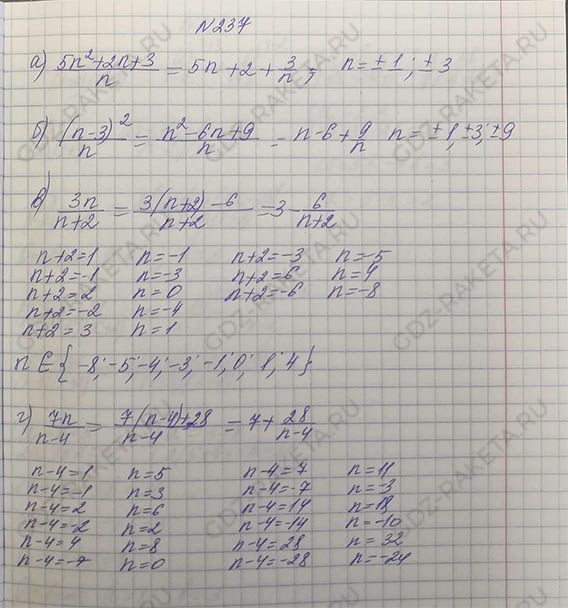 N237
а) (5n²+2n+3)/n = 5n+2+3/n; n=±1; ±3
б) (n-3)²/n = (n²-6n+9)/n = n-6+9/n n=±1; ±3; ±9
в) 3n/(n+2) = (3(n+2)-6)/(n+2) = 3-6/(n+2)
n+2=1 n=-1 n+2=-3 n=-5
n+2=-1 n=-3 n+2=6 n=4
n+2=2 n=0 n+2=-6 n=-8
n+2=-2 n=-4
n+2=3 n=1
n∈{-8; -5; -4; -3; -1; 0; 1; 4}
г) 7n/(n-4) = (7(n-4)+28)/(n-4) = 7+28/(n-4)
n-4=1 n=5 n-4=7 n=11
n-4=-1 n=3 n-4=-7 n=-3
n-4=2 n=6 n-4=14 n=18
n-4=-2 n=2 n-4=-14 n=-10
n-4=4 n=8 n-4=28 n=32
n-4=-4 n=0 n-4=-28 n=-24
GDZ-RAKETA.RU